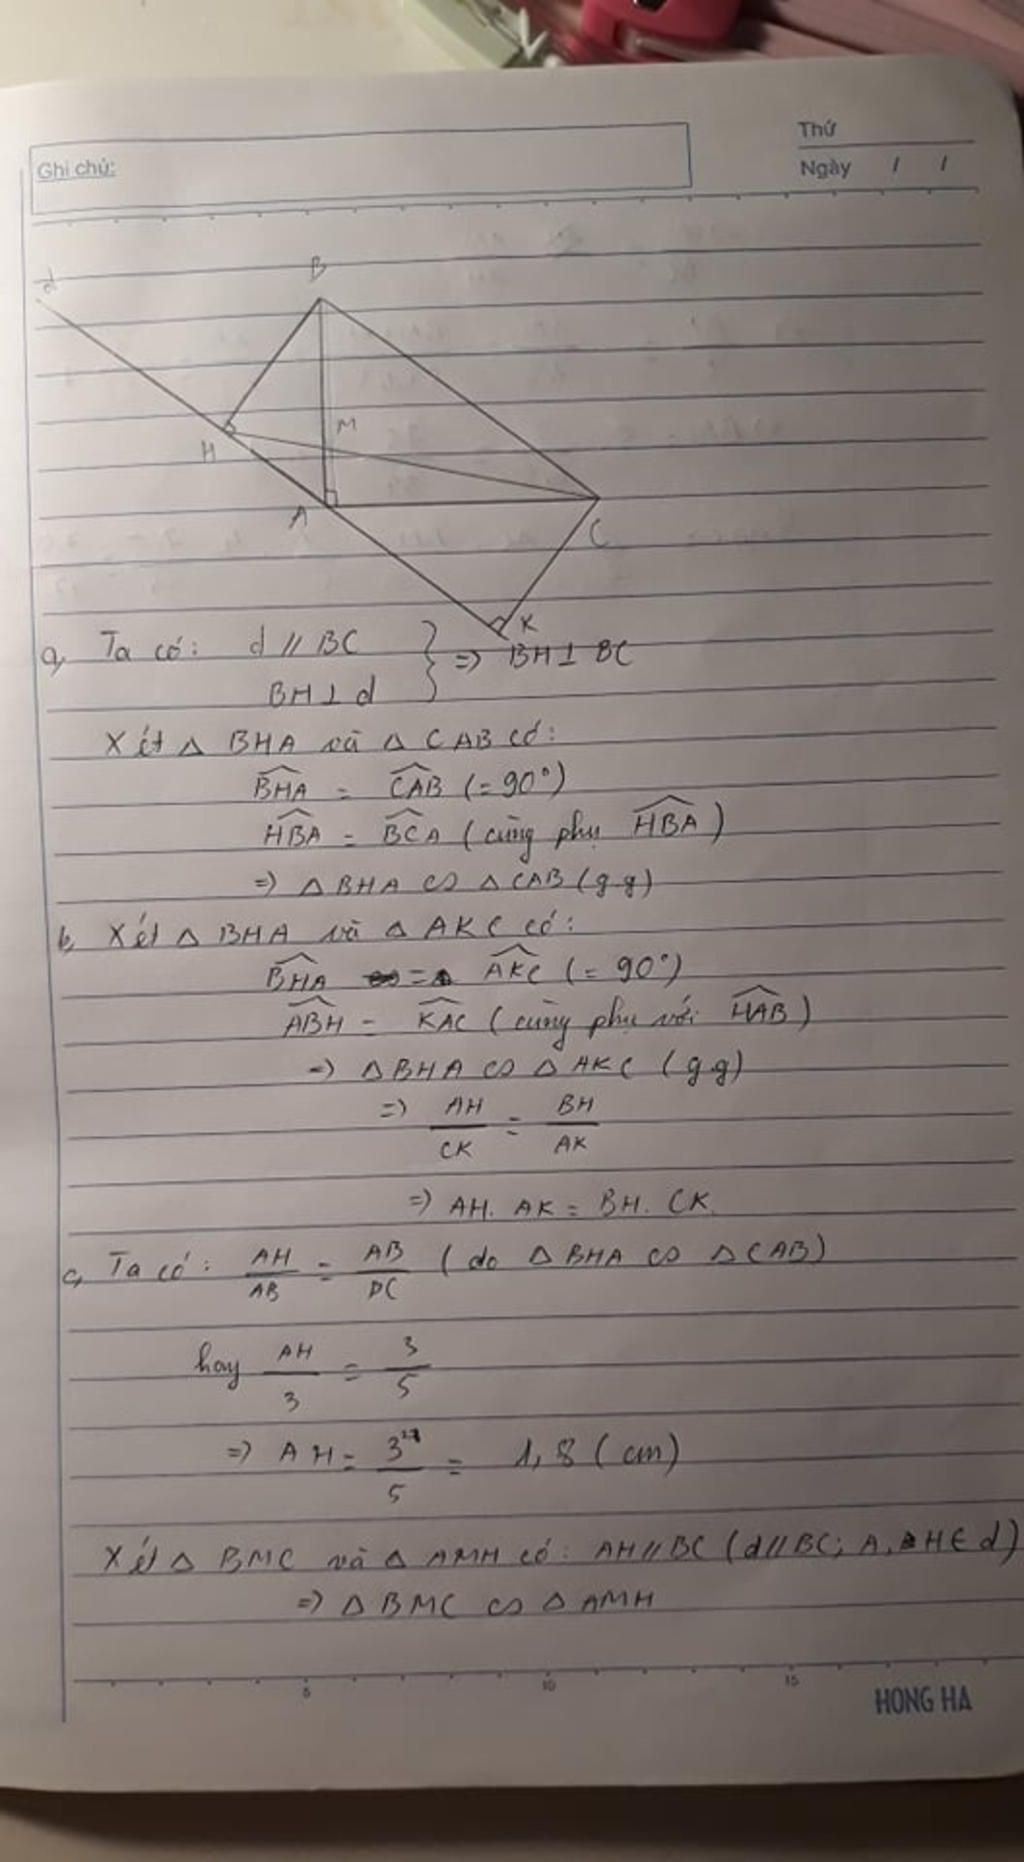 Ghi chú:
Thứ
Ngày / /
d
B
H
M
A
C
K
a, Ta có: d // BC
BH ⊥ d } => BH ⊥ BC
Xét △ BHA và △ CAB có:
BHA = CAB (= 90°)
HBA = BCA (cùng phụ HBA)
=> △ BHA ∽ △ CAB (g-g)
b, Xét △ BHA và △ AKC có:
BHA = AKC (= 90°)
ABH = KAC (cùng phụ với HAB)
=> △ BHA ∽ △ AKC (g.g)
=> AH/CK = BH/AK
=> AH. AK = BH. CK.
c, Ta có: AH/AB = AB/BC (do △ BHA ∽ △ CAB)
hay AH/3 = 3/5
=> AH = 3²/5 = 1,8 (cm)
Xét △ BMC và △ AMH có: AH // BC (d // BC; A, H ∈ d)
=> △ BMC ∽ △ AMH
5 10 15
HONG HA